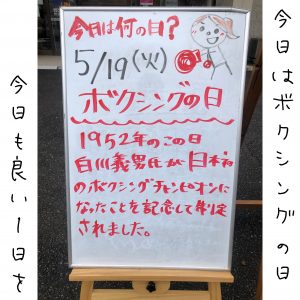 今日はボクシングの日
今日も良い1日を
今日は何の日?
5/19(火)
ボクシングの日
1952年のこの日
白川義男氏が日本初
のボクシングチャンピオンに
なったことを記念して制定
されました。